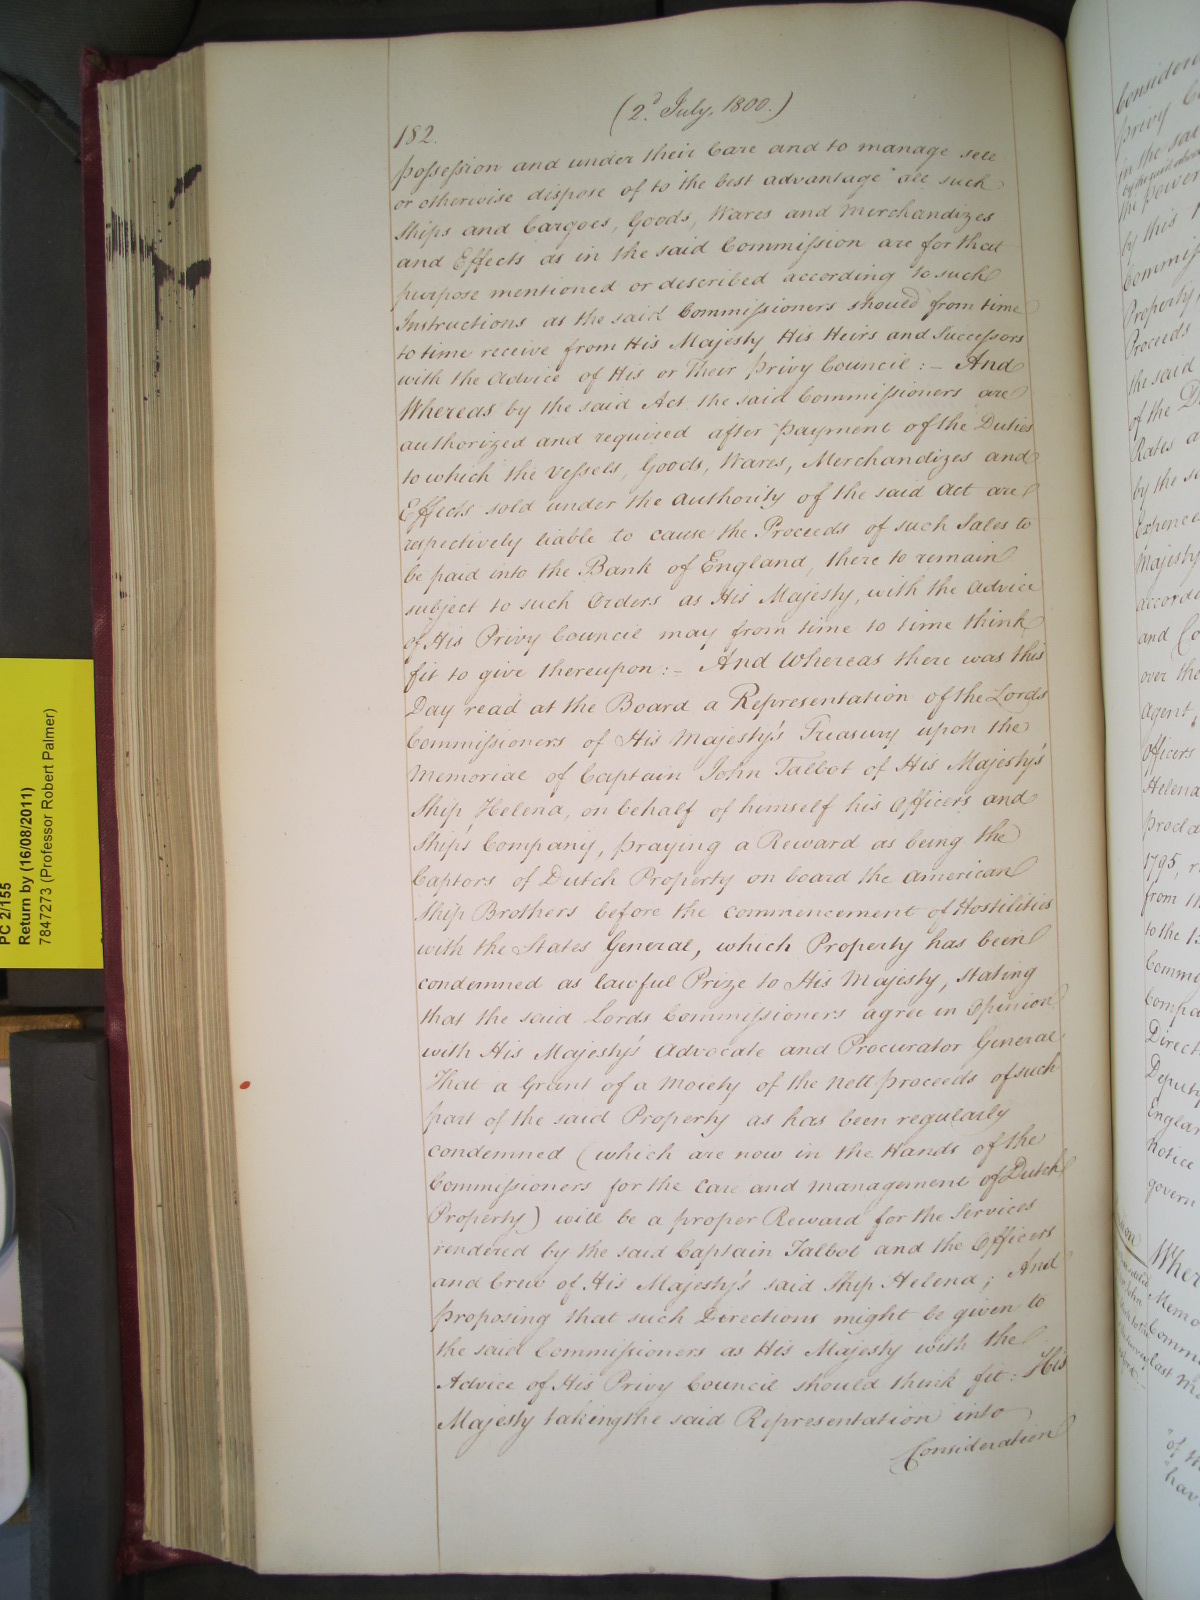 (2d July. 1800.)
182.
possession and under their Care and to manage sell
or otherwise dispose of to the best advantage all such
Ships and Cargoes, Goods, Wares and Merchandizes
and Effects as in the said Commission are for that
purpose mentioned or described according to such
Instructions as the said Commissioners should from time
to time receive from His Majesty His Heirs and Successors
with the Advice of His or Their Privy Council :- And
Whereas by the said Act the said Commissioners are
authorized and required after payment of the Duties
to which the Vessels, Goods, Wares, Merchandizes and
Effects sold under the authority of the said Act are
respectively liable to cause the Proceeds of such Sales to
be paid into the Bank of England, there to remain
subject to such Orders as His Majesty, with the Advice
of His Privy Council may from time to time think
fit to give thereupon :- And Whereas there was this
Day read at the Board a Representation of the Lords
Commissioners of His Majesty's Treasury upon the
Memorial of Captain John Talbot of His Majesty's
Ship Helena, on behalf of himself his Officers and
Ship's Company, praying a Reward as being the
Captors of Dutch Property on board the American
Ship Brothers before the commencement of Hostilities
with the States General, which Property has been
condemned as lawful Prize to His Majesty, stating
that the said Lords Commissioners agree in Opinion
with His Majesty's Advocate and Procurator General
That a Grant of a Moiety of the nett proceeds of such
part of the said Property as has been regularly
condemned (which are now in the Hands of the
Commissioners for the Care and management of Dutch
Property) will be a proper Reward for the Services
rendered by the said Captain Talbot and the Officers
and Crew of His Majesty's said Ship Helena; And
proposing that such Directions might be given to
the said Commissioners as His Majesty with the
Advice of His Privy Council should think fit: His
Majesty taking the said Representation into
Consideration
PC 2/155
Return by (16/08/2011)
7847273 (Professor Robert Palmer)
privy
in the
by this
Property
Proceeds
the said
of the
Rates
by the
Expences
Majesty
and
over
Agent,
Officers
Helena
1795,
from
to the
Directo
Deputy
Englan
notice
govern
Memo
last
"of
"hav